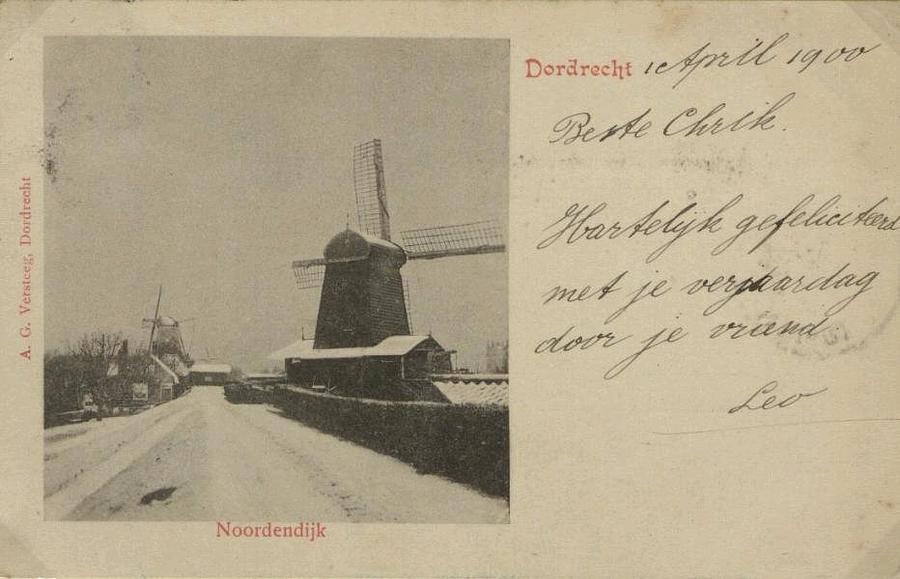 Dordrecht 1 April 1900
Beste Chrik.
Hartelijk gefeliciteerd
met je verjaardag
door je vriend
Leo
A. G. Versteeg, Dordrecht
Noordendijk